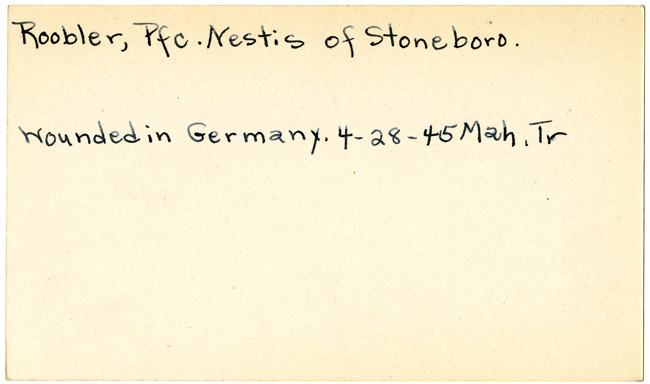 Roobler, Pfc. Nestis of Stoneboro.
Wounded in Germany. 4-28-45 Mah. Tr